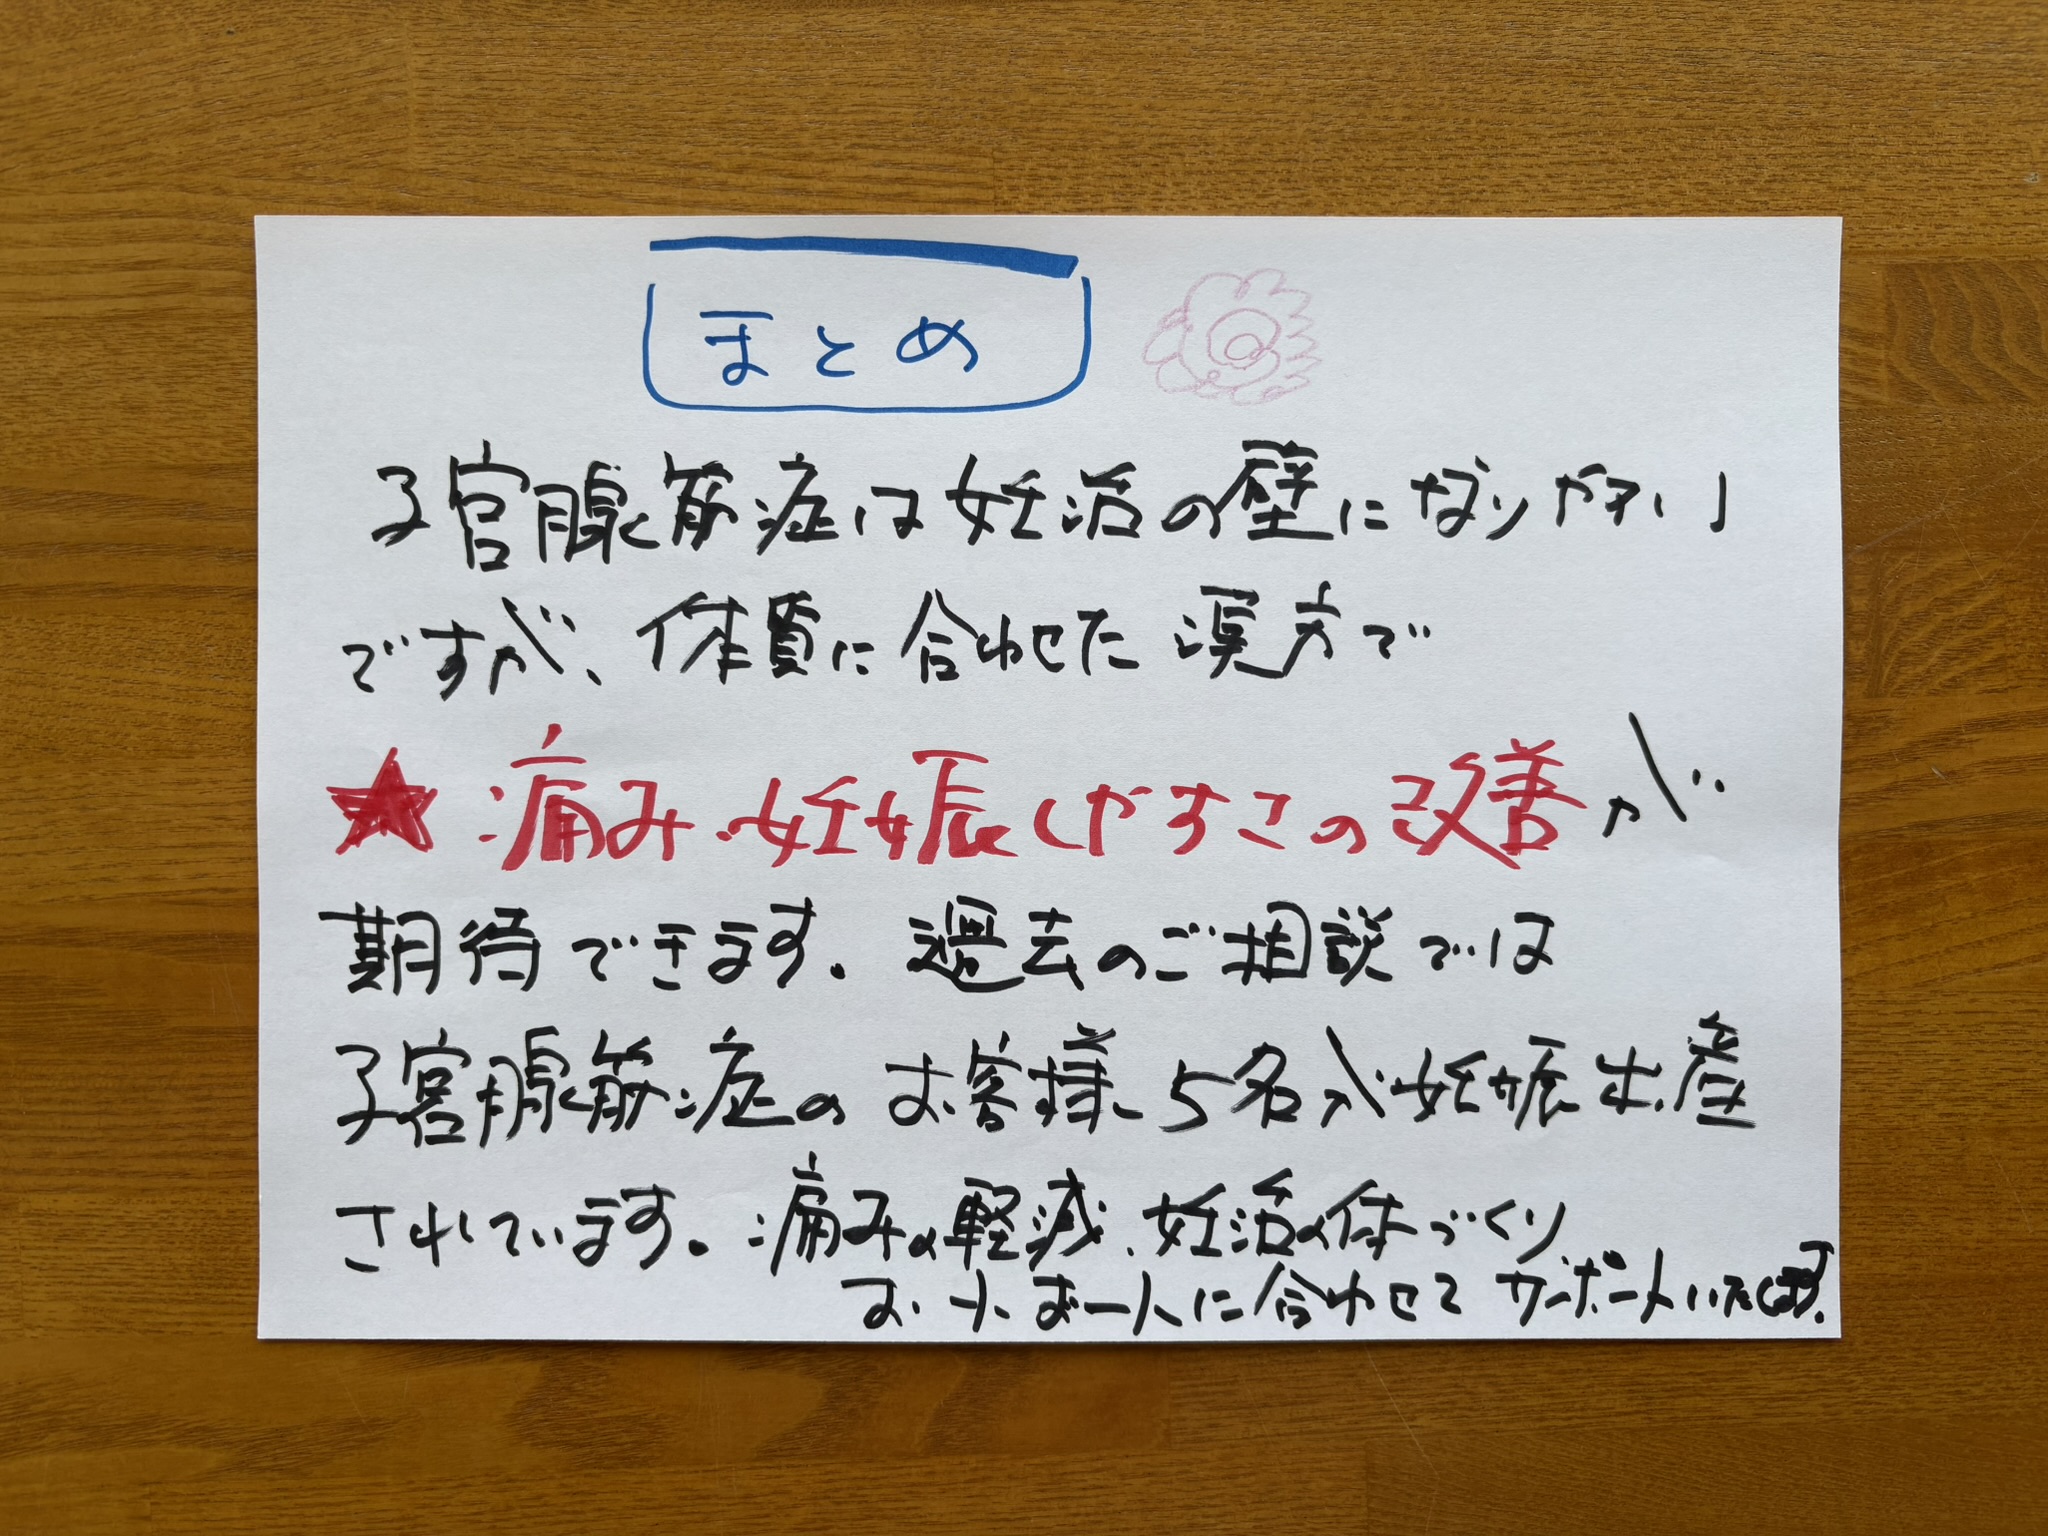 まとめ
子宮腺筋症は妊活の壁になりやすい
ですが、体質に合わせた漢方で
★痛み・妊娠しやすさの改善が
期待できます。過去のご相談では
子宮腺筋症のお客様5名が妊娠出産
されています。痛みの軽減、妊活の体づくり
お一人お一人に合わせてサポートいたします。